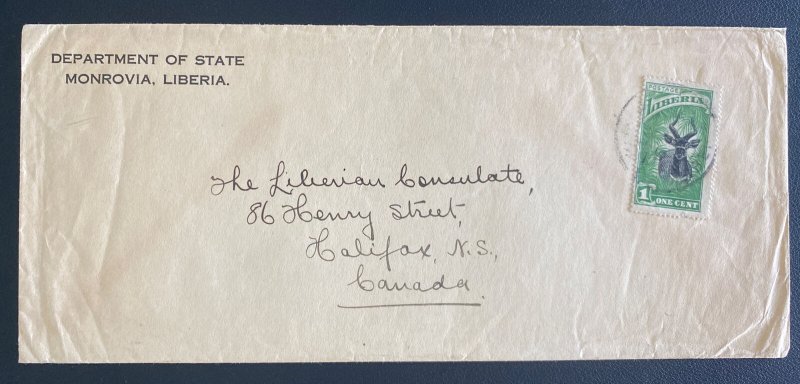 DEPARTMENT OF STATE
MONROVIA, LIBERIA.
POSTAGE
LIBERIA
1 ONE CENT
The Liberian Consulate,
86 Henry Street,
Halifax, N.S.,
Canada.